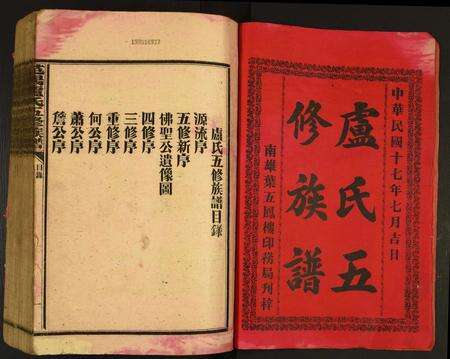 中華民國十七年七月吉日
盧氏五
修族譜
南雄葉五鳳樓印務局刊梓
盧氏五修族譜目錄
源流序
五修新序
佛聖公遺像圖
四修序
三修序
重修序
何公序
蕭公序
詹公序
目錄